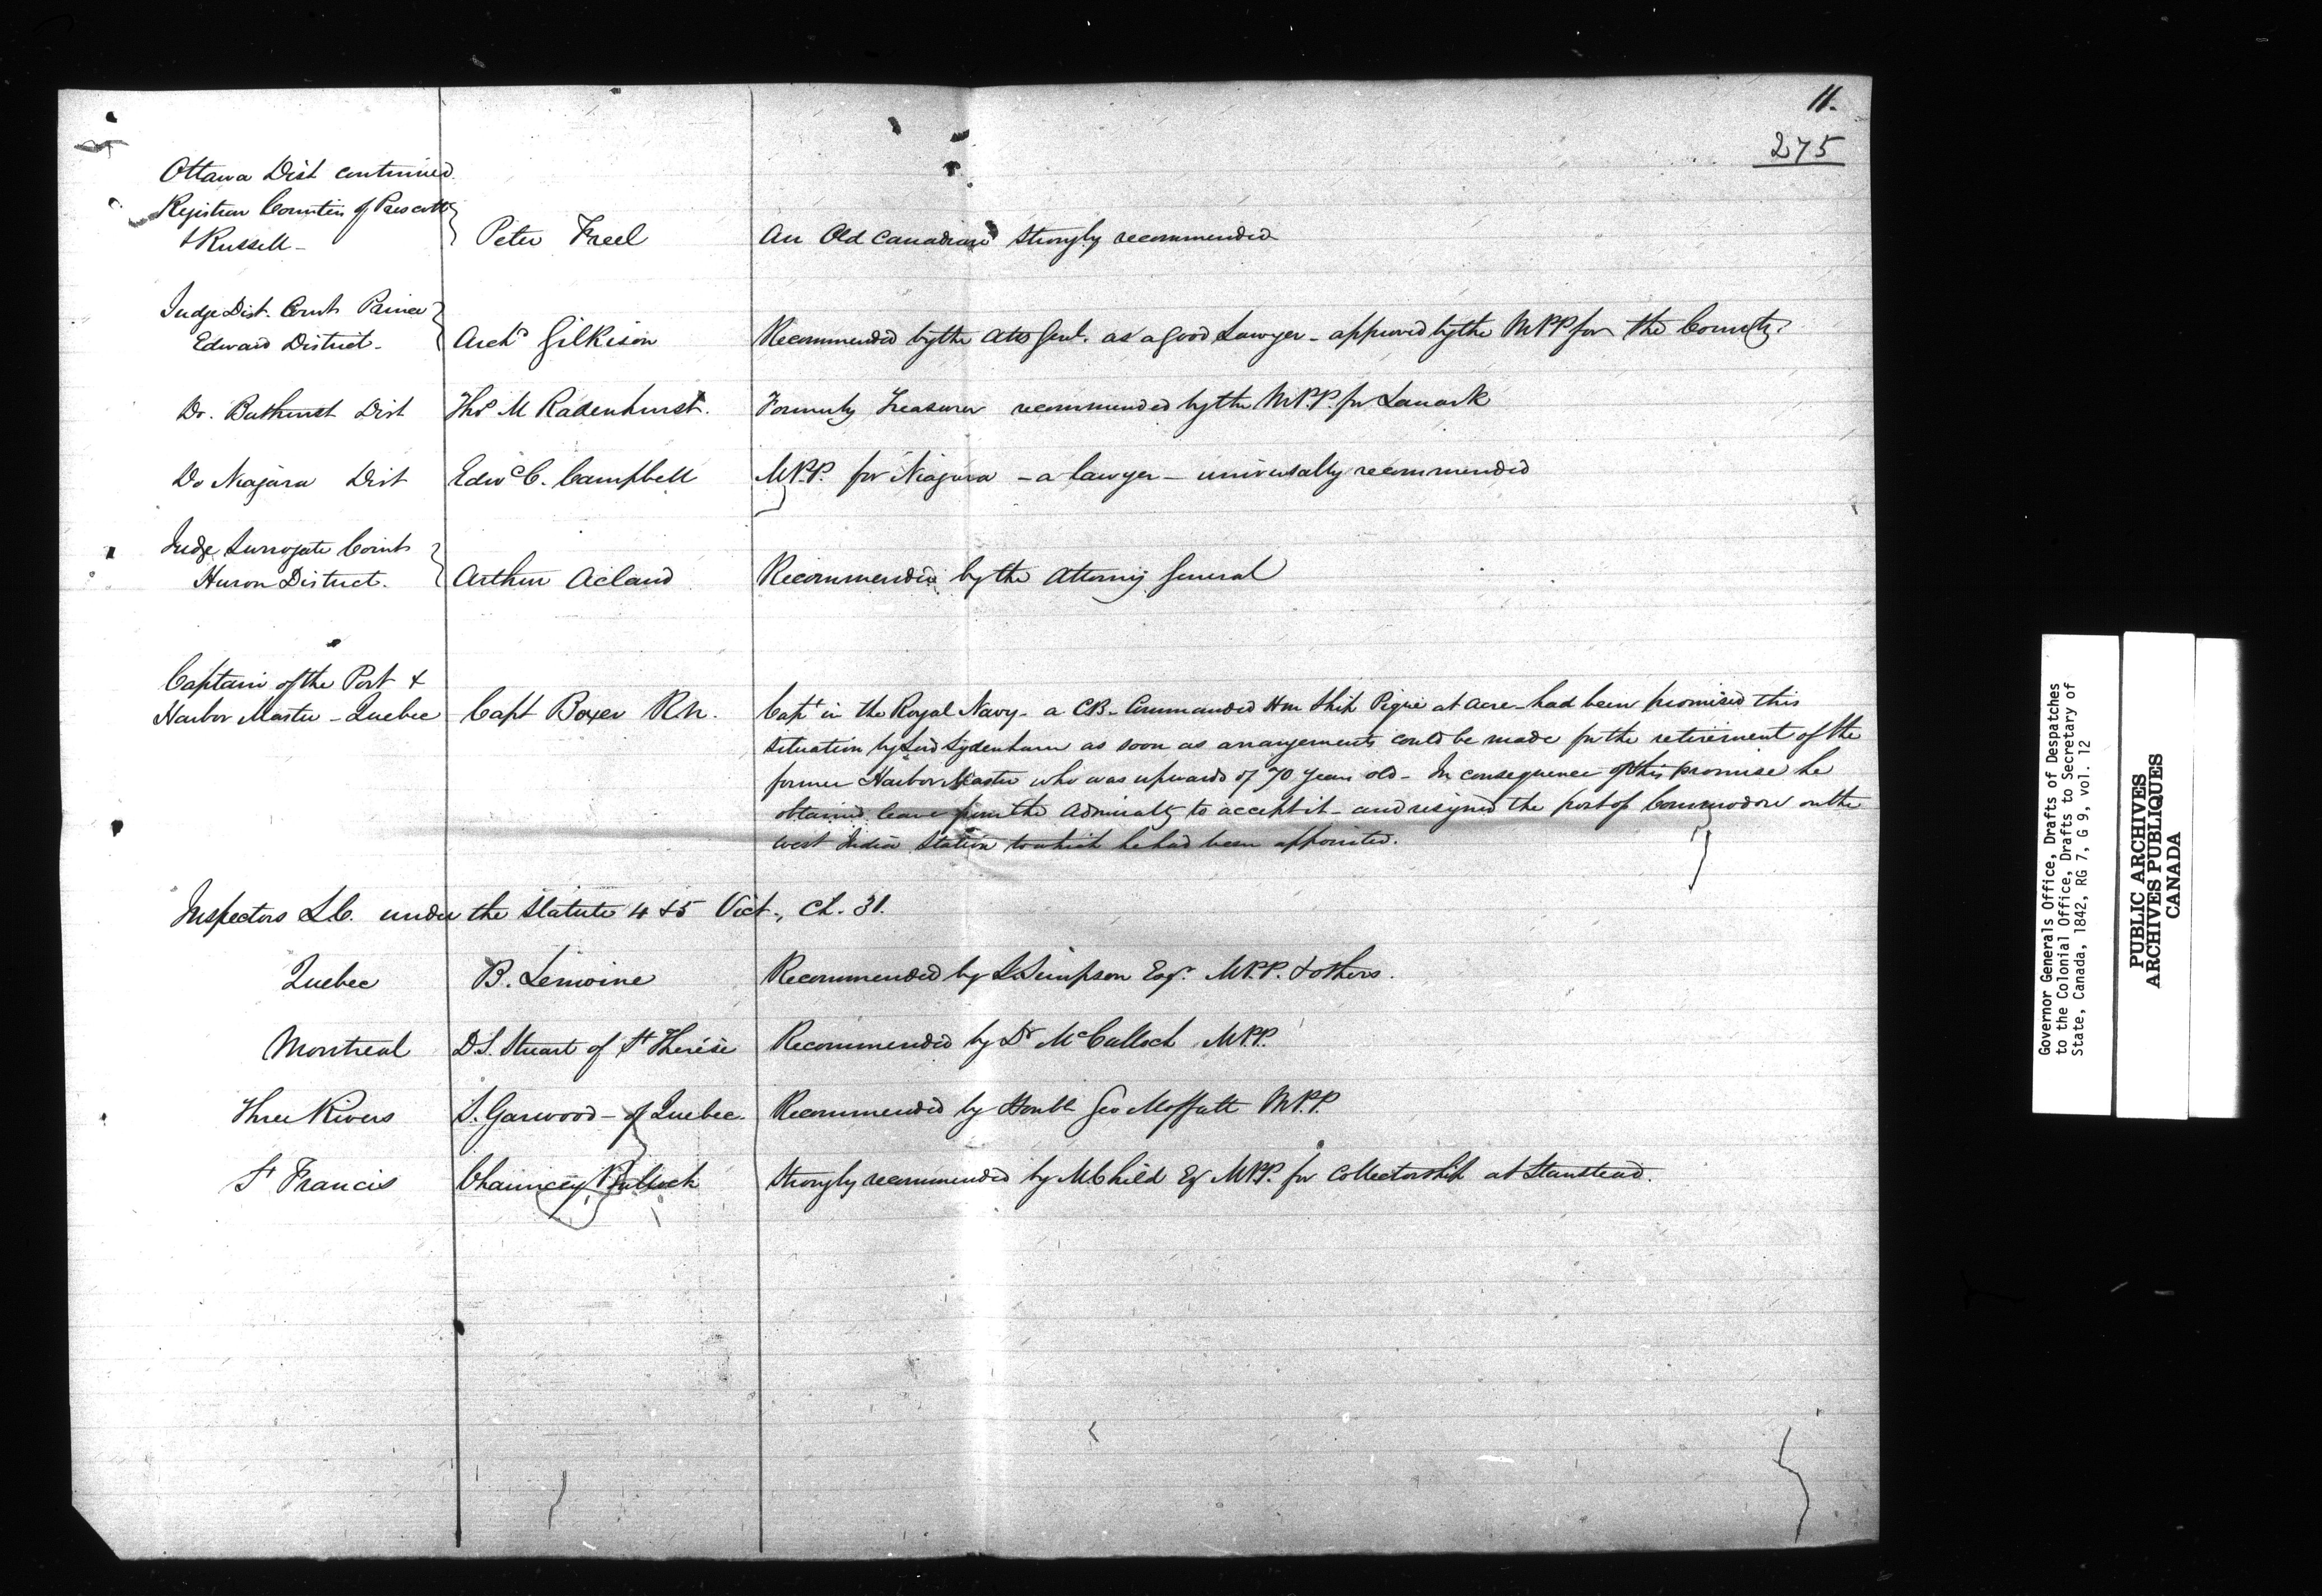 11.
275
Ottawa Dist continued
Registrar Counties of Prescott
& Russell - Peter Freel An Old Canadian strongly recommended
Judge Dist. Court Prince
Edward District - Archd Gilkison Recommended by the Atto Genl. as a good Lawyer - approved by the MPP for the County.
Do. Bathurst Dist Thos M Radenhurst. Formerly Treasurer recommended by the M.P.P. for Lanark
Do Niagara Dist Edwd C. Campbell M.P.P. for Niagara - a lawyer - universally recommended
Judge Surrogate Court
Huron District. Arthur Acland Recommended by the Attorney General
Captain of the Port &
Harbor Master - Quebec Capt Boxer RN. Capt in the Royal Navy - a CB - Commanded Hm Ship Pique at Acre - had been promised this
situation by Lord Sydenham as soon as arrangements could be made for the retirement of the
former Harbor Master who was upwards of 70 years old - In consequence of this promise he
obtained leave from the Admiralty to accept it - and resigned the post of Commodore on the
West India Station to which he had been appointed.
Inspectors L.C. under the Statute 4 & 5 Vict., Ch. 31.
Quebec B. Lemoine Recommended by Simpson Esqr. M.P.P. & others.
Montreal D.S. Stuart of St Therése Recommended by Dr McCulloch M.P.P.
Three Rivers S. Garwood - of Quebec. Recommended by Honble Geo Moffatt M.P.P.
St Francis Chauncey Bullock Strongly recommended by M Child Esq MPP. for Collectorship at Stanstead.
Governor Generals Office, Drafts of Despatches
to the Colonial Office, Drafts to Secretary of
State, Canada, 1842, RG 7, G 9, vol. 12
PUBLIC ARCHIVES
ARCHIVES PUBLIQUES
CANADA